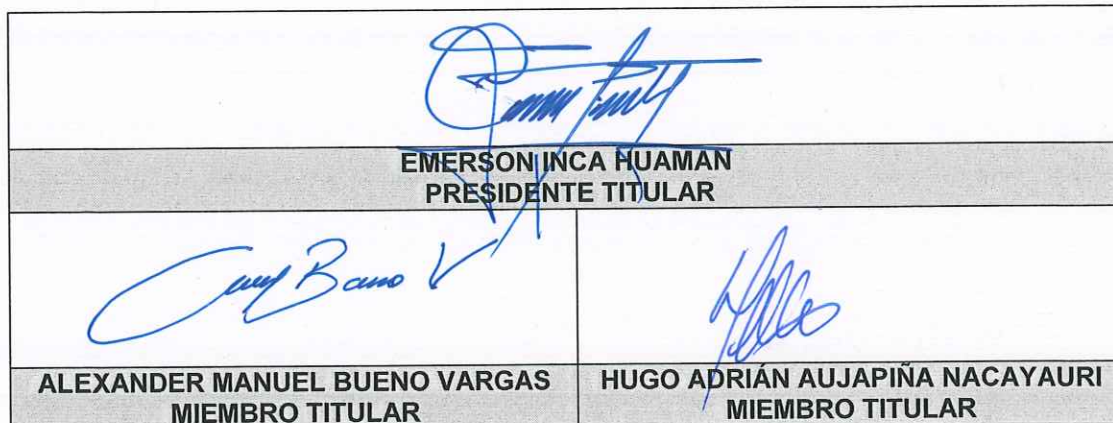 EMERSON INCA HUAMAN
PRESIDENTE TITULAR
ALEXANDER MANUEL BUENO VARGAS
MIEMBRO TITULAR
HUGO ADRIÁN AUJAPIÑA NACAYAURI
MIEMBRO TITULAR